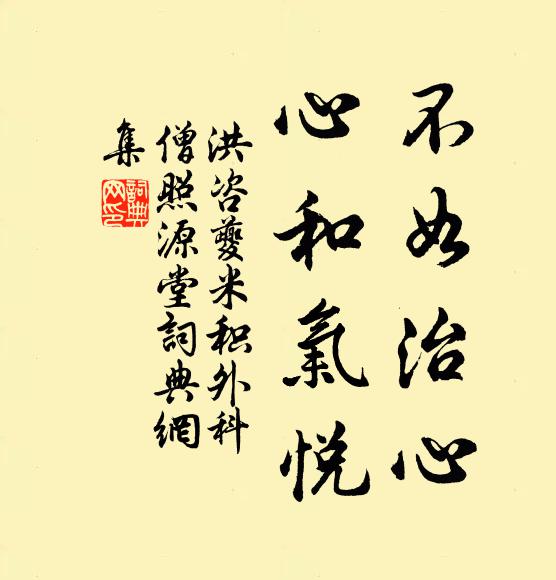 不如治心
心和氣悅
洪咨夔米积外科
僧照源堂詞典網
集
詞典网印